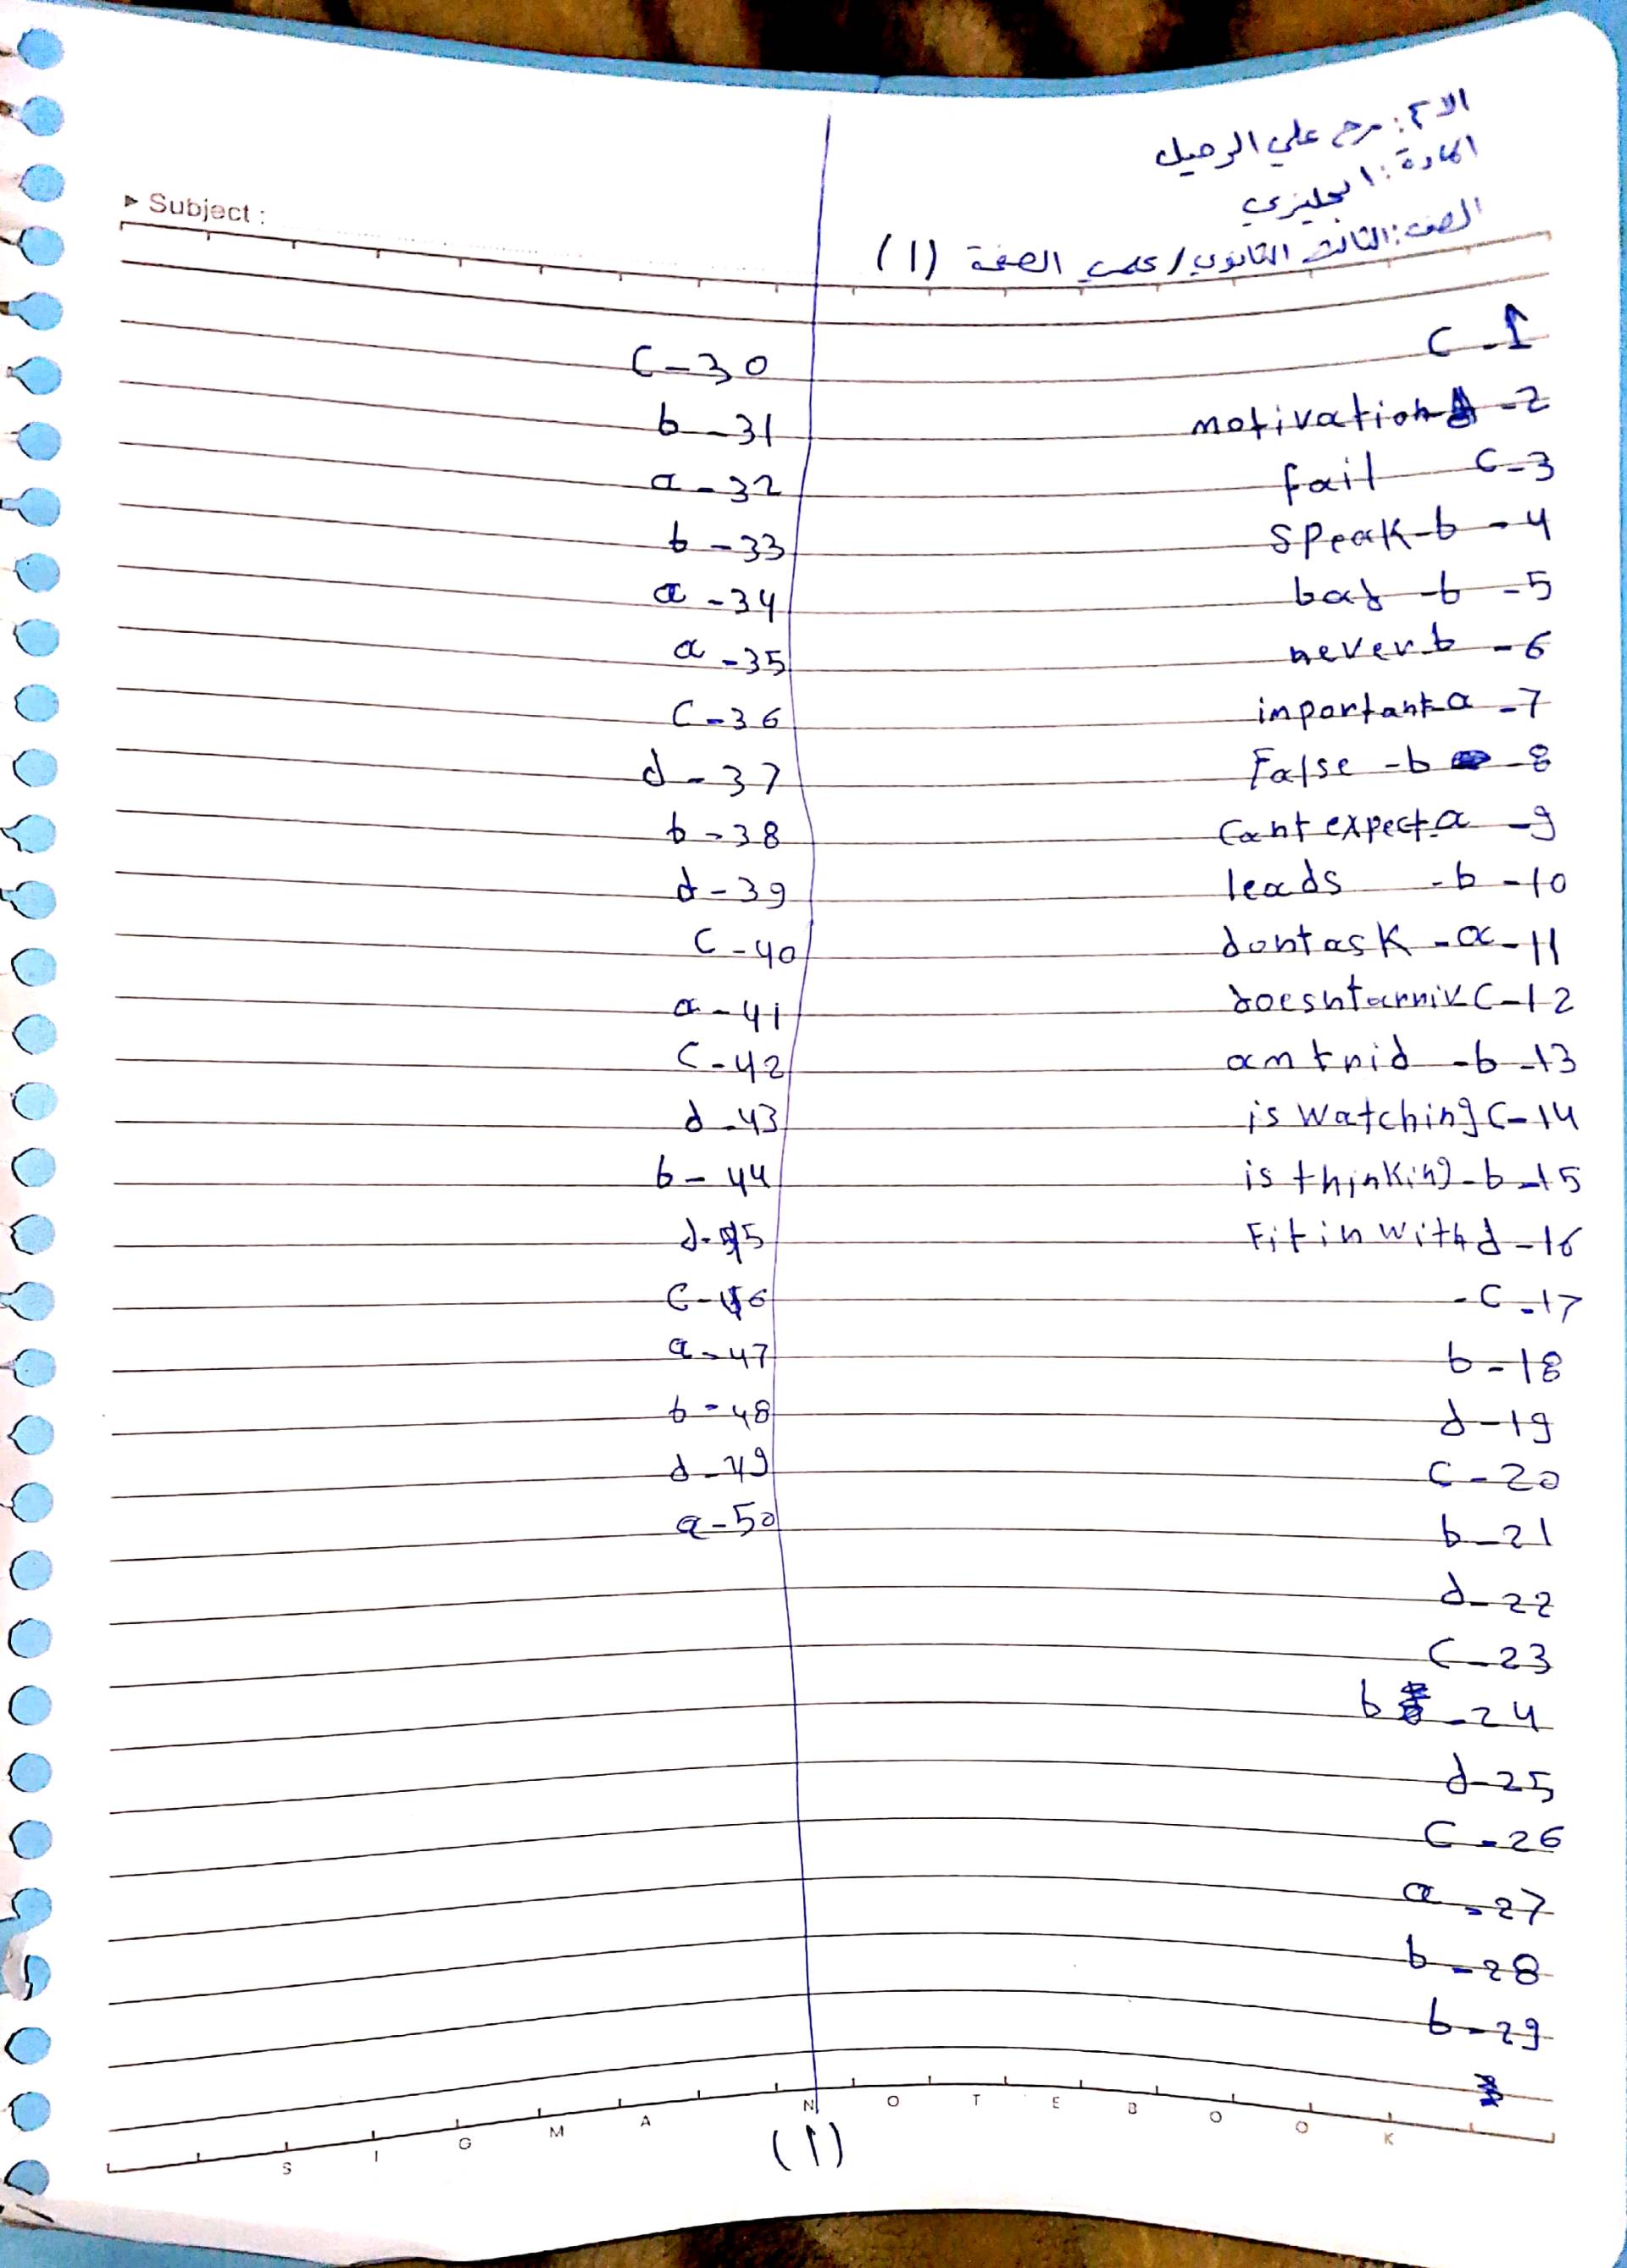 الاسم: مرح علي الرحيل
المادة: انجليزي
الصف: الثالث الثانوي / علمي الصفحة (1)
Subject :
c - 1
motivation - 2
fail c - 3
speak - b - 4
bad - b - 5
never - b - 6
inportant - a - 7
False - b - 8
cant expect - a - 9
leads - b - 10
dont ask - a - 11
C - 12
b - 13
is watching C - 14
is thinking - b - 15
Fit in with d - 16
- C - 17
b - 18
d - 19
C - 20
b - 21
d - 22
C - 23
b - 24
d - 25
C - 26
a - 27
b - 28
b - 29
C - 30
b - 31
a - 32
b - 33
a - 34
a - 35
C - 36
d - 37
b - 38
d - 39
C - 40
a - 41
C - 42
d - 43
b - 44
d - 45
C - 46
a - 47
b - 48
d - 49
a - 50
SIGMA NOTEBOOK
(1)